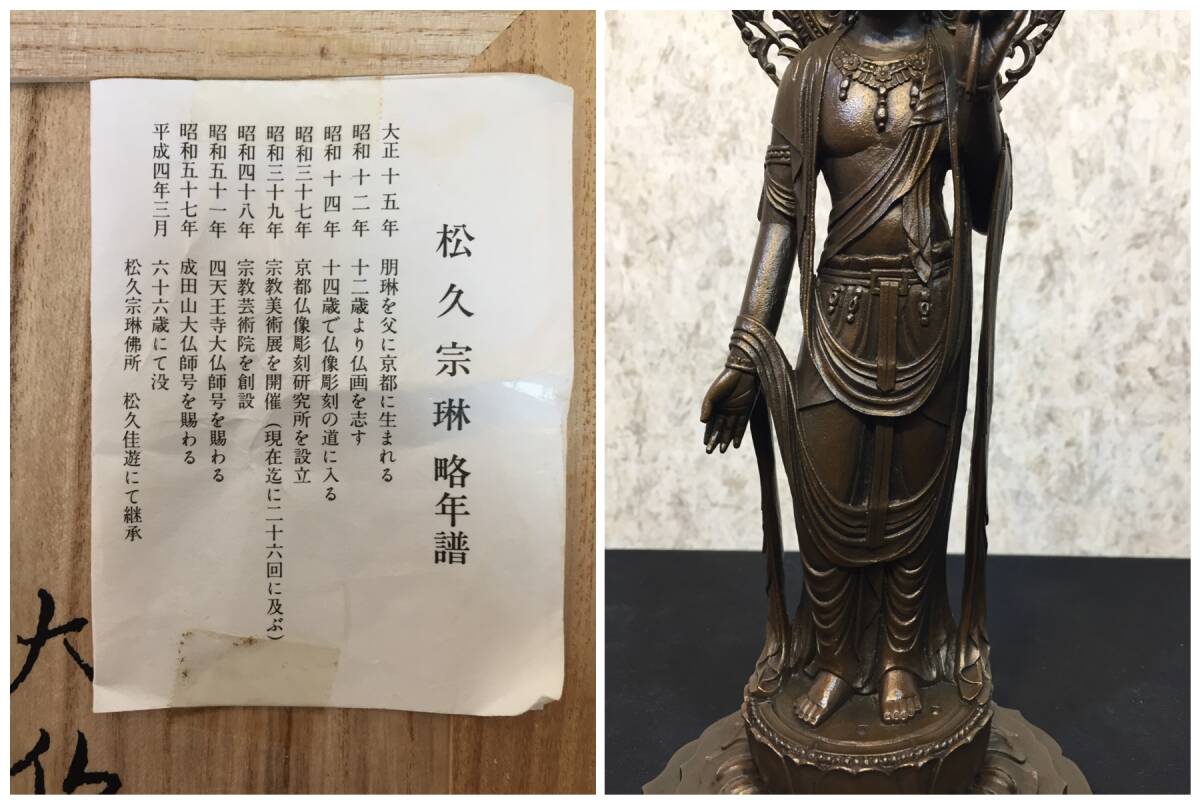 松久宗琳略年譜
大正十五年 朋琳を父に京都に生まれる
昭和十二年 十二歳より仏画を志す
昭和十四年 十四歳で仏像彫刻の道に入る
昭和三十七年 京都仏像彫刻研究所を設立
昭和三十九年 宗教美術展を開催（現在迄に二十六回に及ぶ）
昭和四十八年 宗教芸術院を創設
昭和五十一年 四天王寺大仏師号を賜わる
昭和五十七年 成田山大仏師号を賜わる
平成四年三月 六十六歳にて没
松久宗琳佛所 松久佳遊にて継承
大仏